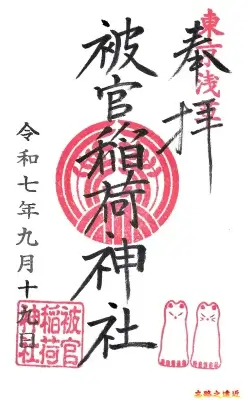 東京浅草
奉拝
被官稲荷神社
令和七年九月十九日
被官
稲荷
神社